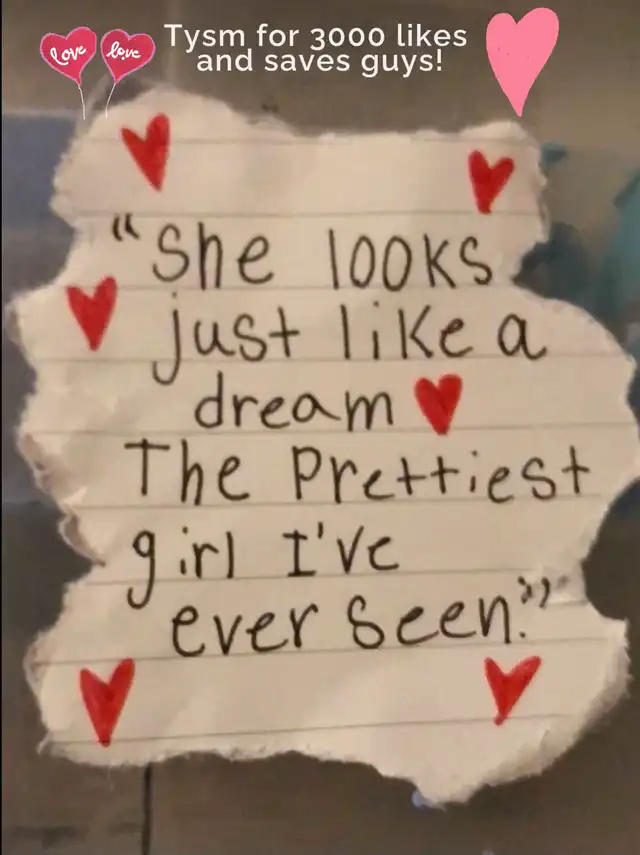 love love
Tysm for 3000 likes
and saves guys!
“She looks
just like a
dream
The Prettiest
girl I've
ever seen.”